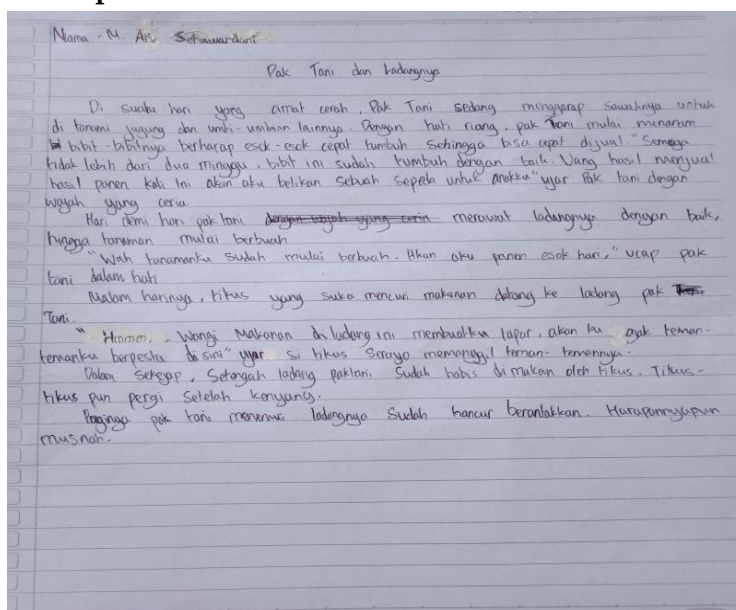 Nama . M. Ari Setiawardani
Pak Tani dan Ladangnya
Di suatu hari yang amat cerah, Pak Tani sedang menggarap sawahnya untuk
di tanami jagung dan umbi-umbian lainnya. Dengan hati riang, pak Tani mulai menanam
bibit-bibitnya berharap esok-esok cepat tumbuh sehingga bisa cepat dijual "Semoga
tidak lebih dari dua minggu, bibit ini sudah tumbuh dengan baik. Uang hasil menjual
hasil panen kali ini akan aku belikan sebuah sepeda untuk anakku" ujar Pak tani dengan
wajah yang ceria
Hari demi hari pak tani dengan wajah yang ceria merawat ladangnya dengan baik,
hingga tanaman mulai berbuah
"Wah tanamanku sudah mulai berbuah. Akan aku panen esok hari," ucap pak
tani dalam hati
Malam harinya, tikus yang suka mencuri makanan datang ke ladang pak
Tani.
"Hmmm, .. Wangi Makanan di ladang ini membuatku lapar, akan ku ajak teman-
temanku berpesta di sini" ujar si tikus Seraya memanggil teman-temannya.
Dalam sekejap, Setengah ladang paktani Sudah habis di makan oleh tikus. Tikus-
tikus pun pergi setelah kenyang.
Paginya pak tani menemui ladangnya Sudah hancur berantakkan. Harapannyapun
musnah.